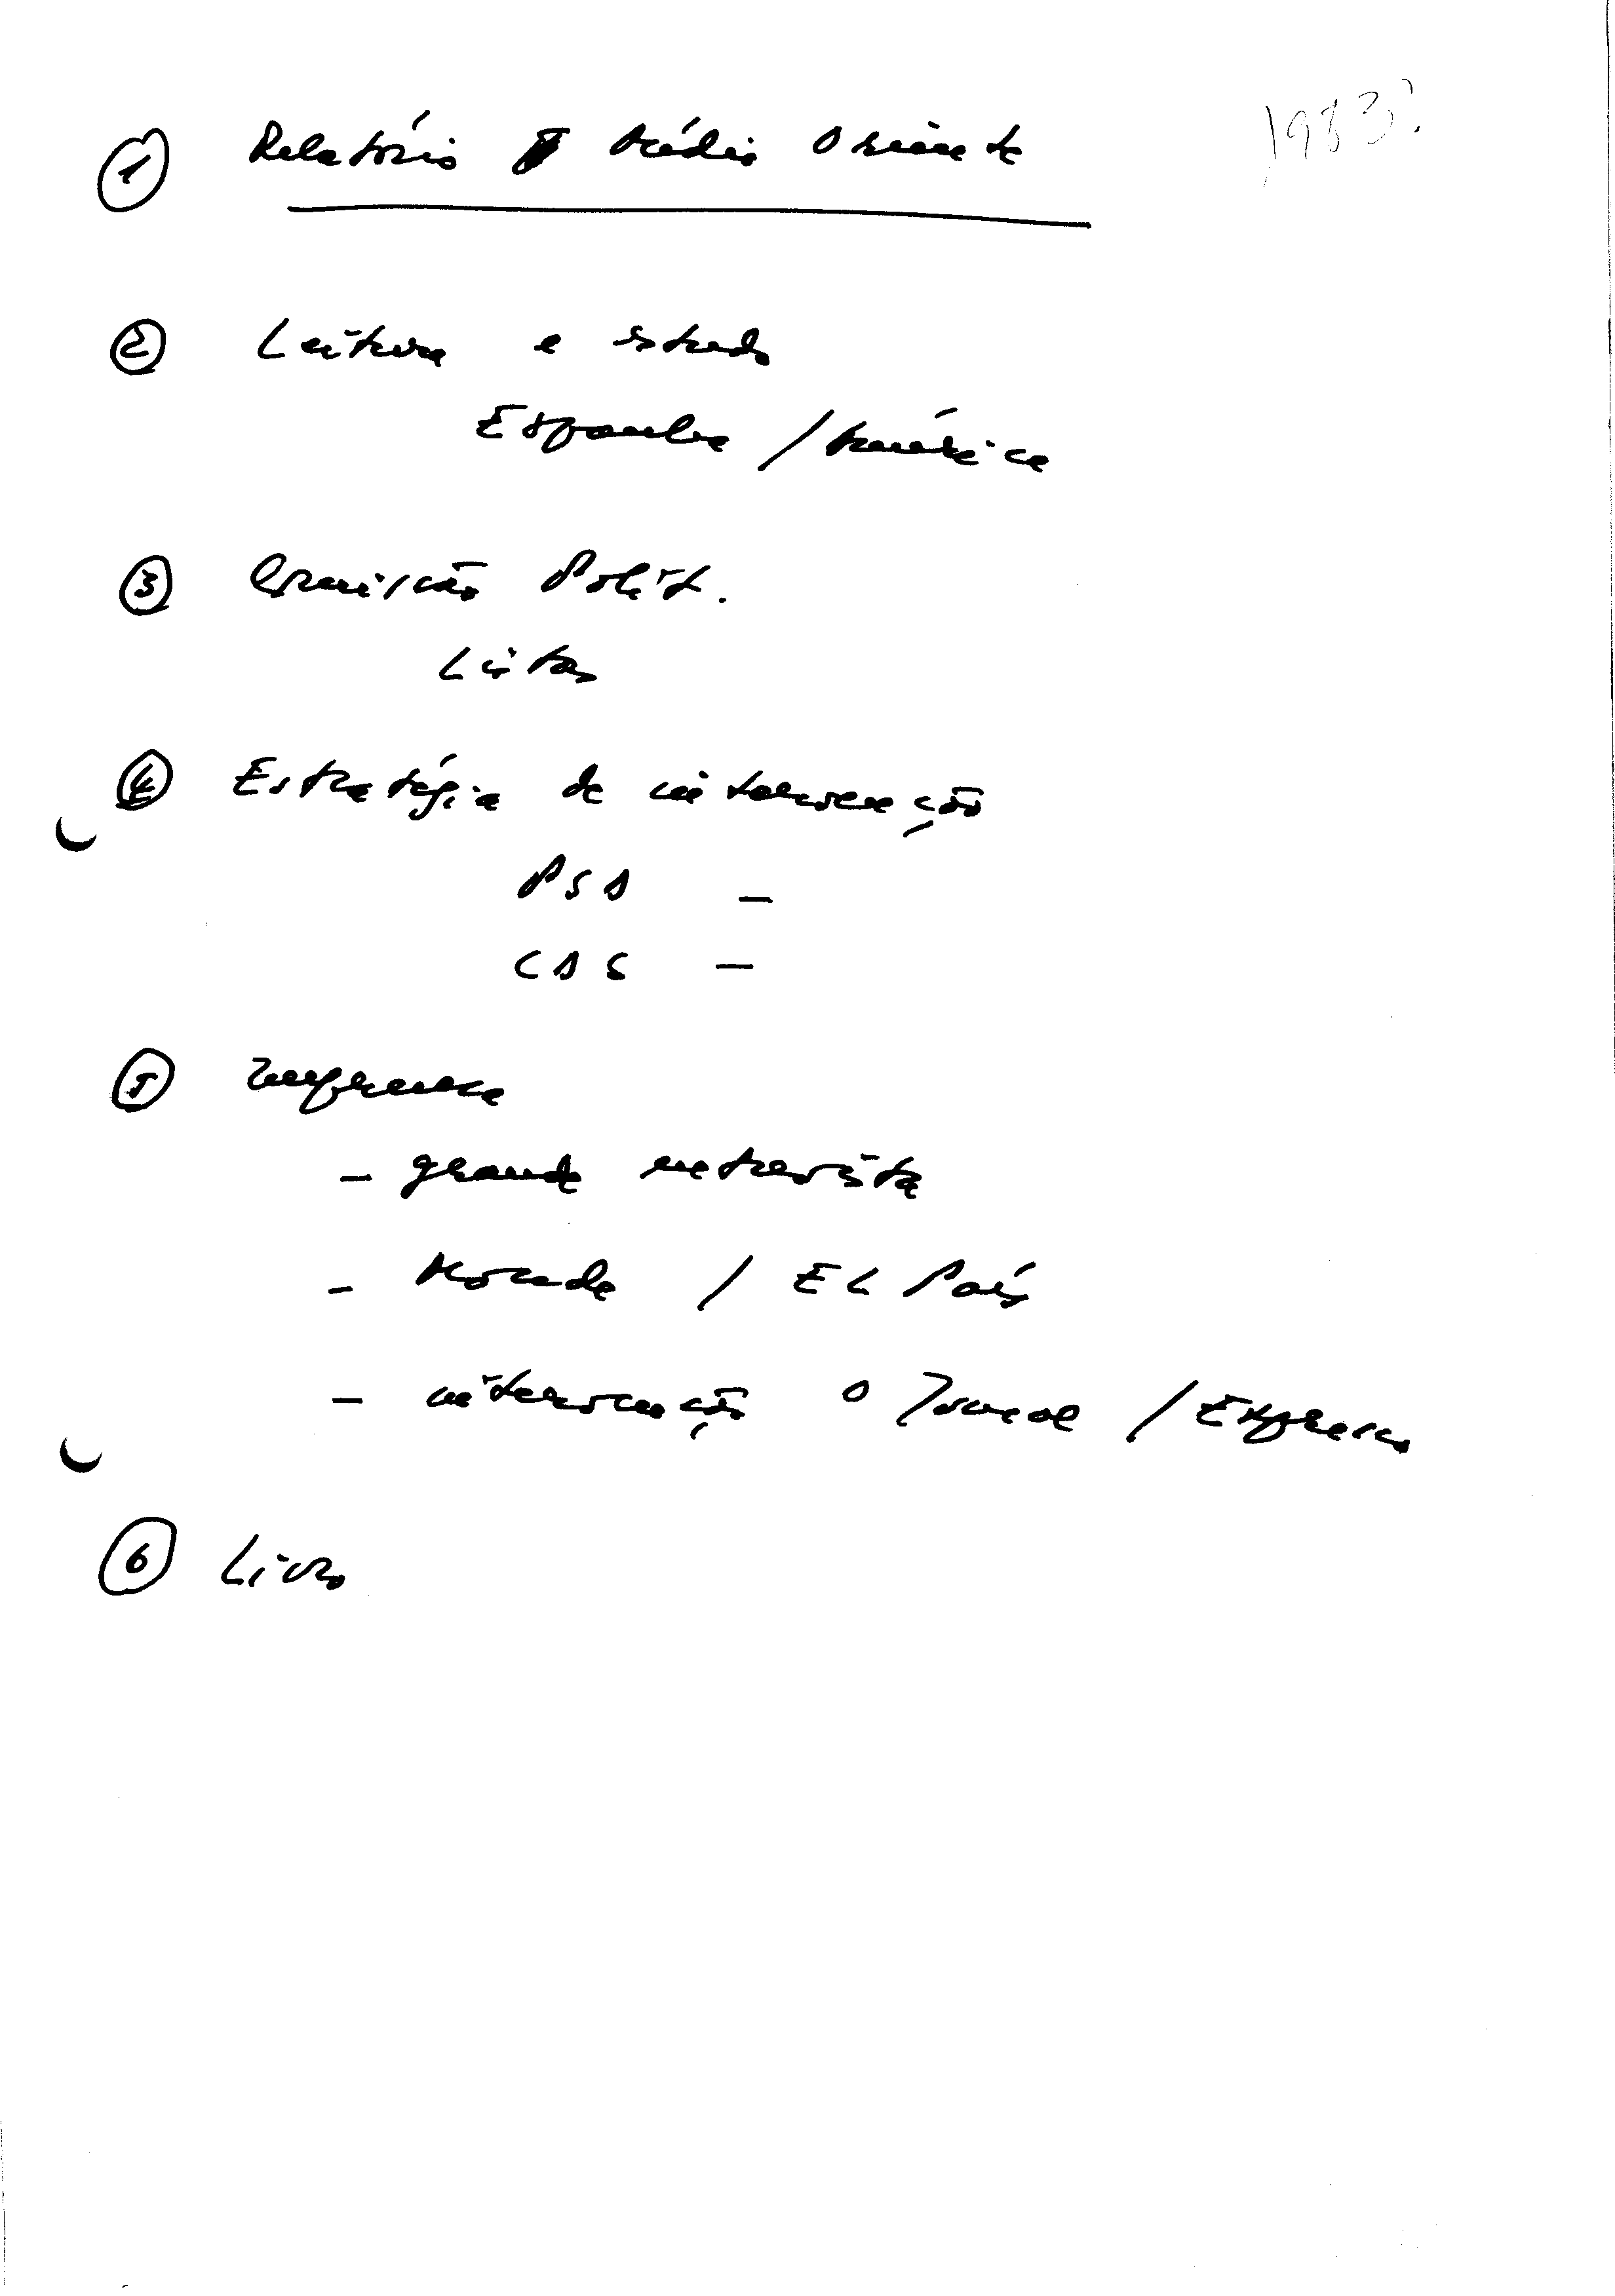 1983?
① Relatório Médio Oriente
② Leitura e estudo
Espanha / América
③ Comissão Polít.
Listas
④ Estratégia de intervenção
PSD –
CDS –
⑤ Imprensa
– grande entrevista
– / El País
– intervenção O Jornal / Expresso
⑥ Livro